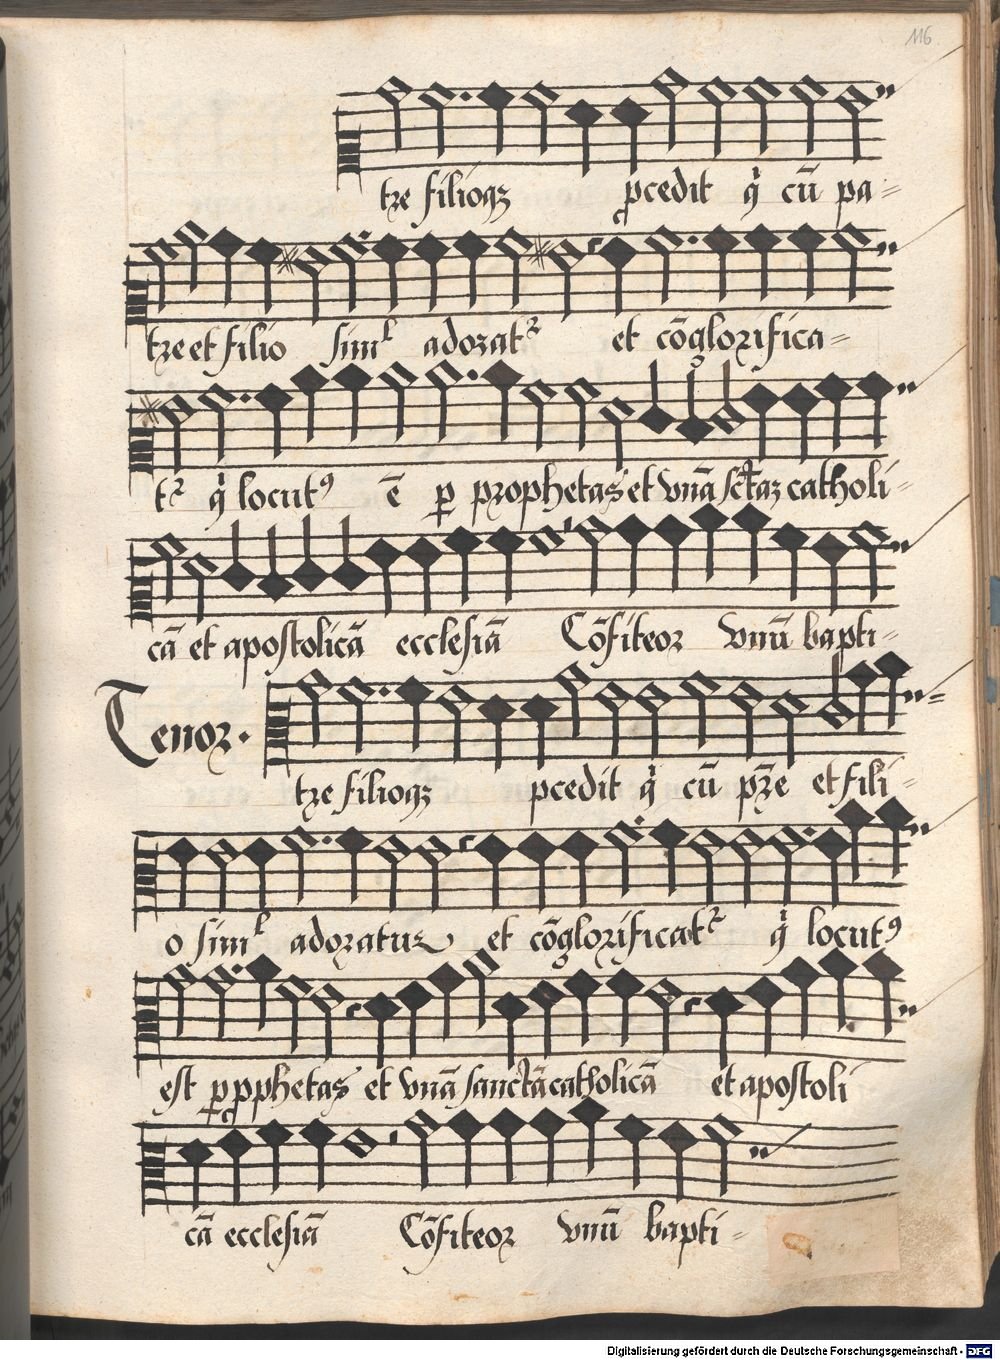 116
tre filioqȝ pcedit q̇ cū pa=
tre et filio simˡ adoratᷣ et cōglorifica=
tᷣ q̇ locutꝰ ē ꝑ prophetas et vnā sctaȝ catholi=
cā et apostolicā ecclesiā Cōfiteor vnū bapti=
Tenor.
tre filioqȝ pcedit q̇ cū pr̄e et fili=
o simˡ adoratur et cōglorificatᷣ q̇ locutꝰ
est ꝑ pphetas et vnā sanctā catholicā et apostoli
cā ecclesiā Cōfiteor vnū bapti=
Digitalisierung gefördert durch die Deutsche Forschungsgemeinschaft - DFG